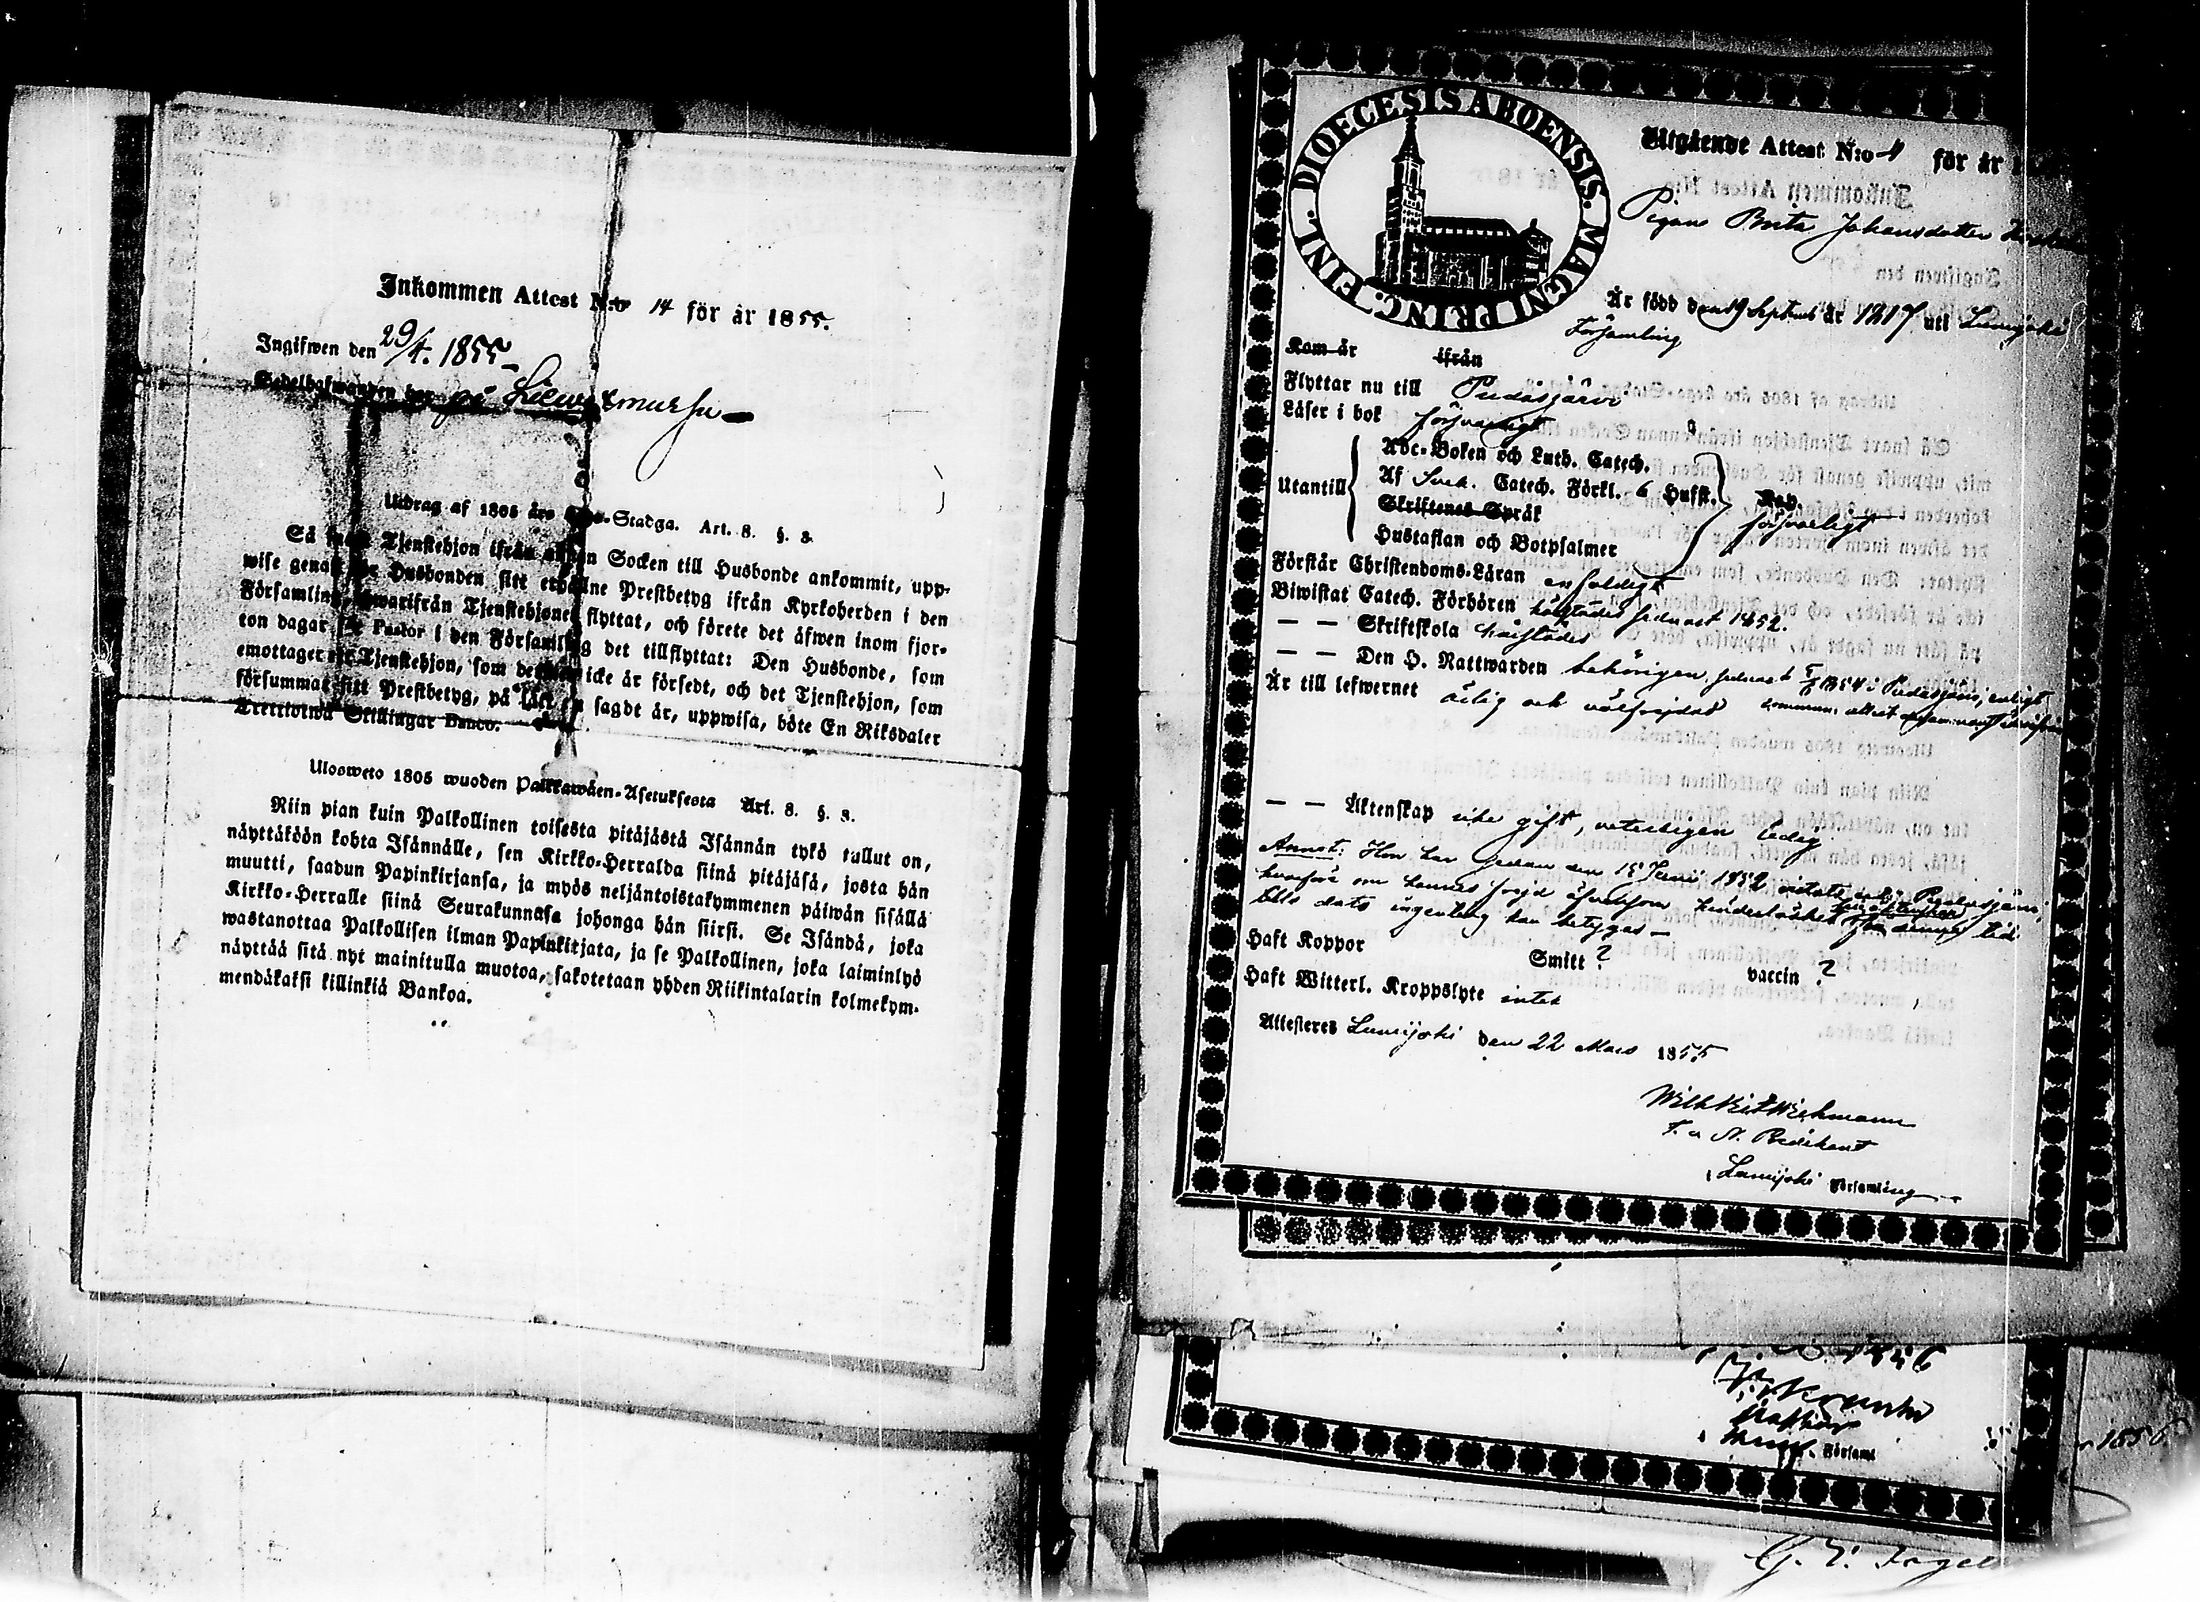 Inkommen Attest N:o 14 för år 1855.
Ingifwen den 29/4. 1855
Sedelhafwanden bor på
Utdrag af 1805 års Lego-Stadga. Art. 8. §. 3.
Så snart Tjenstehjon ifrån annan Socken till Husbonde ankommit, upp-
wise genast för Husbonden sitt erhållne Prestbetyg ifrån Kyrkoherden i den
Församling, hwarifrån Tjenstehjonet flyttat, och förete det äfwen inom fjor-
ton dagar för Pastor i den Församling det tillflyttat: Den Husbonde, som
emottager ett Tjenstehjon, som dermed icke är försedt, och det Tjenstehjon, som
försummat sitt Prestbetyg, på sätt nu sagdt är, uppwisa, böte En Riksdaler
Trettiotwå Skillingar Banco.
Ulosweto 1805 wuoden Palkkawäen-Asetuksesta Art. 8. §. 3.
Niin pian kuin Palkollinen toisesta pitäjästä Isännän tykö tullut on,
näyttäköön kohta Isännälle, sen Kirkko-Herralda siinä pitäjäsä, josta hän
muutti, saadun Papinkirjansa, ja myös neljäntoistakymmenen päiwän sisällä
Kirkko-Herralle siinä Seurakunnasa johonga hän siirsi. Se Isändä, joka
wastanottaa Palkollisen ilman Papinkirjata, ja se Palkollinen, joka laiminlyö
näyttää sitä nyt mainitulla muotoa, sakotetaan yhden Riikintalarin kolmekym-
mendäkaksi killinkiä Bankoa.
DIOECESIS ABOENSIS. MAGNI PRINC. FINL.
Utgående Attest N:o 4 för år
Pigan Brita Johansdotter
Är född den 19 Septemb år 1817 uti Lumijoki
Församling
Kom år ifrån
Flyttar nu till Pudasjärvi
Läser i bok försvarligt
Abc-Boken och Luth. Catech.
Utantill Af Sveb. Catech. Förkl. 6 Hufst.
Skriftenes Språk
försvarligt
Hustaflan och Botpsalmer
Förstår Christendoms-Läran enfaldigt
Biwistat Catech. Förhören härstädes sednast 1852.
— — Skriftskola härstädes
— — Den H. Nattwarden behörigen, sednast i Pudasjärvi, enligt
Är till lefwernet ärlig och välfrejdad
— — Äktenskap icke gift, veterligen ledig
Annot: Hon har sedan den 15 Juni 1852 vistats i Pudasjärvi,
hvarföre om hennes frejd äfvensom hinderlöshet
tills dato ingenting kan betygas —
Haft Koppor Smitt ? vaccin ?
Haft Witterl. Kroppslyte intet
Attesteres Lumijoki den 22 Mars 1855
Wilh Wichmann
Predikant
i Lumijoki Församling
1856
i Församl
1856